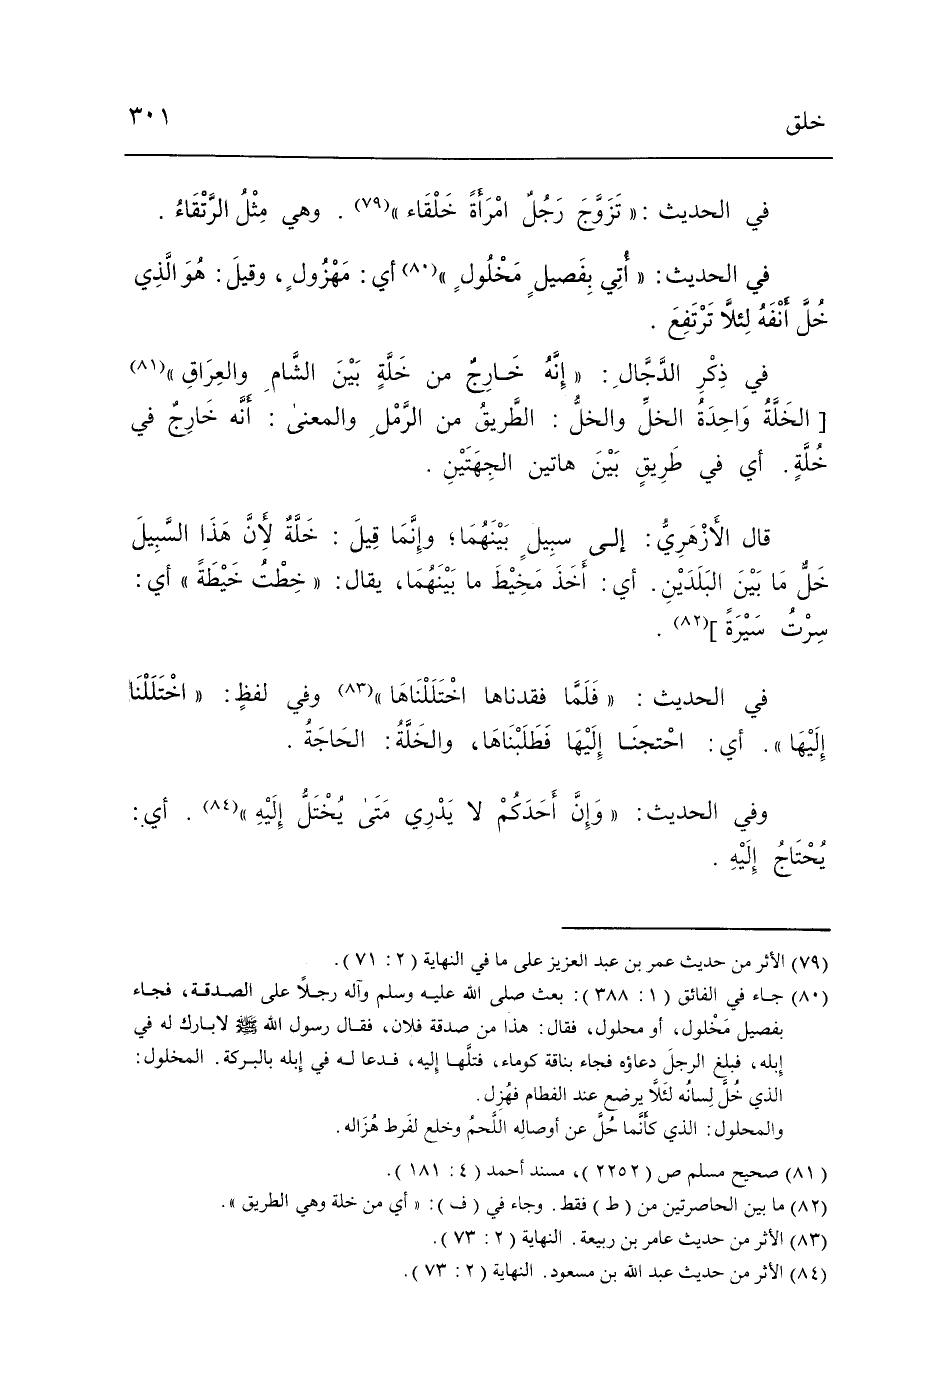 خلق ٣٠١
في الحديث : « تَزَوَّجَ رَجُلٌ امْرَأَةً خَلْقَاء »(٧٩) . وهي مِثْلُ الرَّتْقَاءُ .
في الحديث: « أُتِي بِفَصيلٍ مَخْلُولٍ »(٨٠) أي: مَهْزُولٍ، وقيلَ: هُوَ الَّذِي
خُلَّ أَنْفَهُ لِئلَّا تَرْتَفِعَ .
في ذِكْرِ الدَّجَّالِ: « إِنَّهُ خَـارِجٌ من خَلَّةٍ بَيْنَ الشَّامِ والعِرَاقِ »(٨١)
[ الخَلَّةُ وَاحِدَةُ الخلِّ والخلُّ : الطَّريقُ من الرَّمْلِ والمعنىٰ : أَنَّه خَارِجٌ في
خُلَّةٍ. أي في طَرِيقٍ بَيْنَ هاتين الجِهَتَيْنِ .
قال الأَزْهَرِيُّ: إلـى سبيلٍ بَيْنَهُمَا؛ وإنَّمَا قِيلَ : خَلَّةٌ لِأَنَّ هَذَا السَّبِيلَ
خَلُّ مَا بَيْنَ البَلَدَيْنِ. أي: أَخَذَ مَخِيْطَ ما بَيْنَهُمَا، يقال: « خِطْتُ خَيْطَةً » أي:
سِرْتُ سَيْرَةً ](٨٢) .
في الحديث : « فَلَمَّا فقدناها اخْتَلَلْنَاهَا »(٨٣) وفي لفظٍ: « اخْتَلَلْنَا
إِلَيْهَا ». أي: احْتجنَـا إِلَيْهَا فَطَلَبْنَاهَا، والخَلَّةُ: الحَاجَةُ .
وفي الحديث: « وَإِنَّ أَحَدَكُمْ لا يَدْرِي مَتَىٰ يُخْتَلُّ إِلَيْهِ »(٨٤) . أي:
يُحْتَاجُ إِلَيْهِ .
(٧٩) الأثر من حديث عمر بن عبد العزيز على ما في النهاية ( ٢ : ٧١ ).
(٨٠) جـاء في الفائق ( ١ : ٣٨٨ ): بعث صلى الله عليـه وسلم وآله رجـلًا على الصـدقـة، فجـاء
بفصيل مَخْلول، أو محلول، فقال: هذا من صدقة فلان، فقـال رسول الله ﷺ لابارك له في
إبله، فبلغ الرجلَ دعاؤه فجاء بناقة كوماء، فتلَّهـا إليه، فـدعا لـه في إبله بالبـركة. المخلول:
الذي خُلَّ لِسانُه لئَلَّا يرضع عند الفطام فهُزِل.
والمحلول: الذي كأَنَّما حُلَّ عن أوصالِه اللَّحمُ وخلع لفَرط هُزَاله.
( ٨١) صحيح مسلم ص ( ٢٢٥٢ )، مسند أحمد ( ٤ : ١٨١ ).
(٨٢) ما بين الحاصرتين من ( ط ) فقط. وجاء في ( ف ): « أي من خلة وهي الطريق ».
(٨٣) الأثر من حديث عامر بن ربيعة. النهاية ( ٢ : ٧٣ ).
(٨٤) الأثر من حديث عبد الله بن مسعود. النهاية ( ٢ : ٧٣ ).